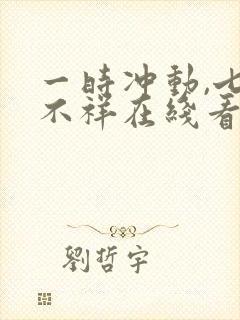 一時冲動,七
不祥在綫看
劉哲宇